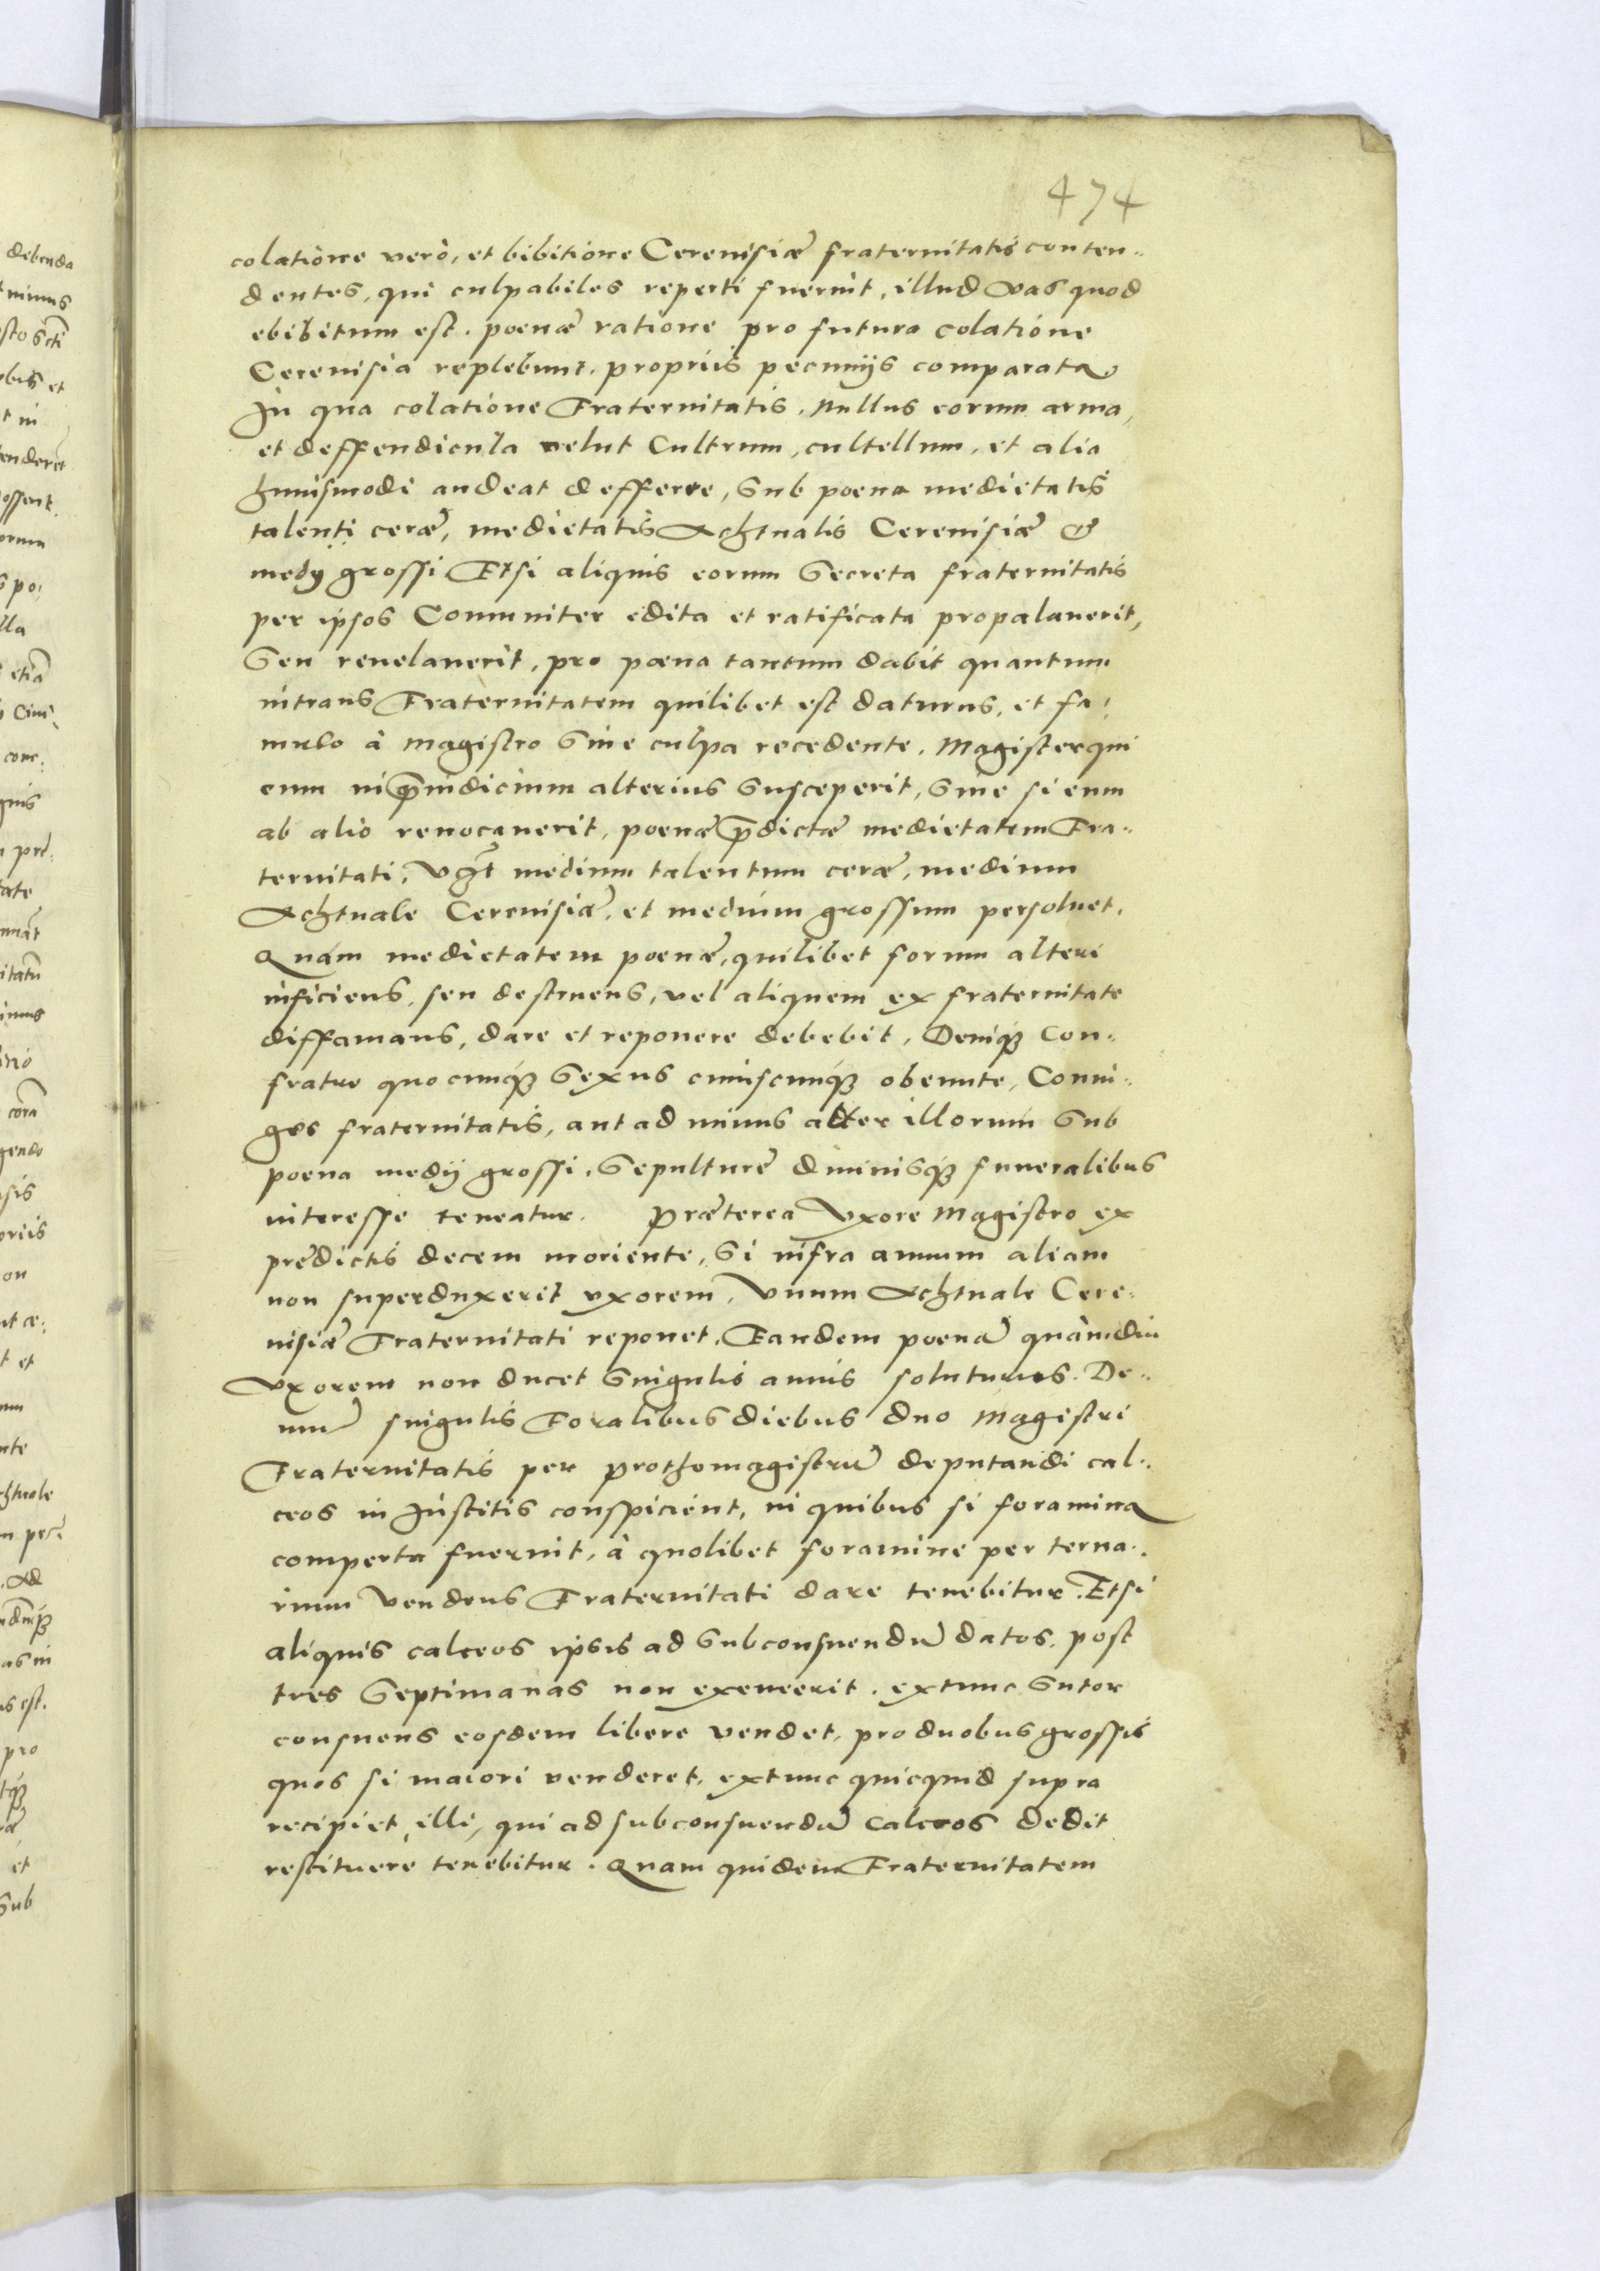 474
colatione verò, et bibitione Cereuisiæ fraternitatis conten-
dentes, qui culpabiles reperti fuerint, illud vas quod
ebibitum est, poenæ ratione pro futura colatione
Cereuisia replebunt, propriis pecunijs comparata
In qua colatione Fraternitatis, Nullus eorum arma,
et deffendicula velut Cultrum, cultellum, et alia
huiusmodi audeat defferre, sub poena medietatis
talenti ceræ, medietatis Achtualis Cereuisiæ &
medij grossi Etsi aliquis eorum secreta fraternitatis
per ipsos Comuniter edita et ratificata propalauerit,
seu reuelauerit, pro pœna tantum dabit quantum
intrans Fraternitatem quilibet est daturus, et fa-
mulo à Magistro sine culpa recedente, Magister qui
eum in p̃iudicium alterius susceperit, siue si eum
ab alio reuocauerit, poenæ p̃dictæ medietatem Fra-
ternitati, vq̃t medium talentum ceræ, medium
Achtuale Cereuisiæ, et medium grossum persoluet,
Quam medietatem poenæ, quilibet forum alteri
inficiens, seu destruens, vel aliquem ex fraternitate
diffamans, dare et reponere debebit, Deniq3 Con-
fratre quocunq3 sexus cuiuscunq3 obeunte, Coniu-
ges fraternitatis, aut ad minus alter illorum sub
poena medij grossi, sepulturæ diuinisq3 funeralibus
interesse teneatur. Præterea Vxore Magistro ex
predictis decem moriente, si infra annum aliam
non superduxerit vxorem, Vnum Achtuale Cere-
uisiæ Fraternitati reponet, Eandem poenã quàmdiu
Vxorem non ducet singulis annis soluturus. De-
mũ singulis Foralibus diebus duo Magistri
Fraternitatis per prothomagistrũ deputandi cal-
ceos in Institis conspicient, in quibus si foramina
comperta fuerint, à quolibet foramine per terna-
rium vendens Fraternitati dare tenebitur. Etsi
aliquis calceos ipsis ad subconsuendũ datos, post
tres septimanas non exemerit, extunc sutor
consuens eosdem libere vendet, pro duobus grossis
quos si maiori venderet, extunc quicquid supra
recipiet illi, qui ad subconsuendũ calceos dedit
restituere tenebitur. Quam quidem Fraternitatem